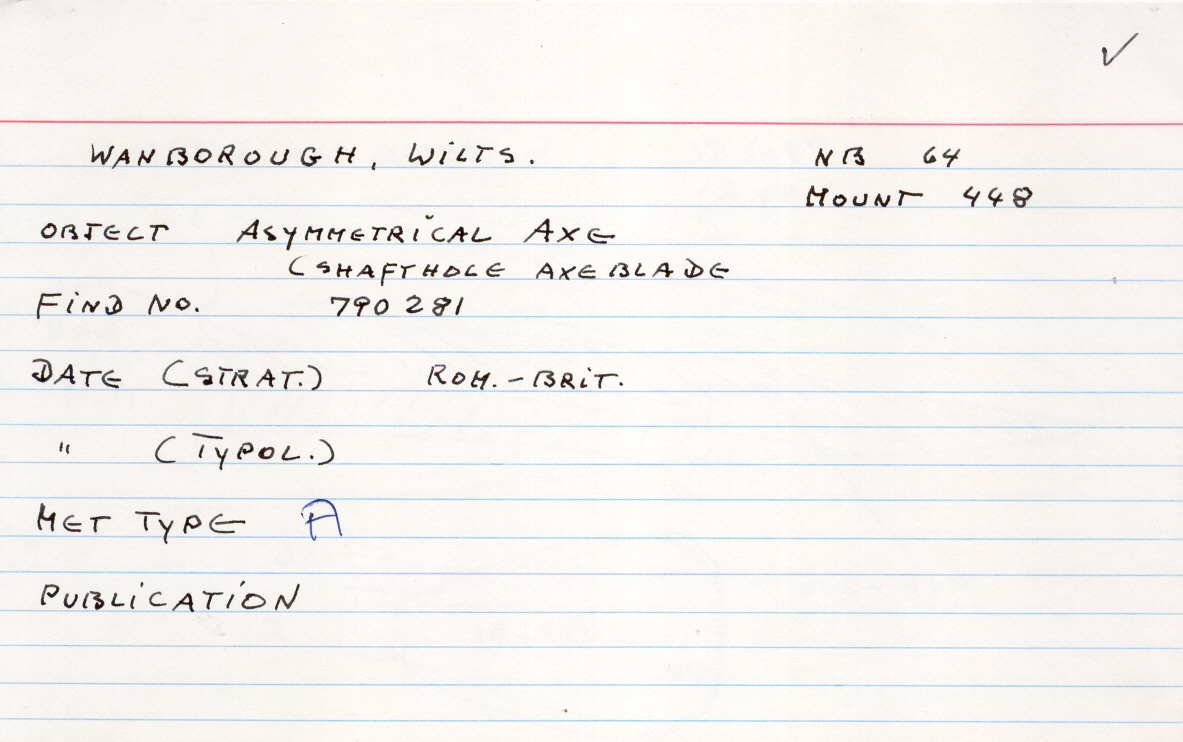 ✓
WANBOROUGH, WILTS. NB 64
MOUNT 448
OBJECT ASYMMETRICAL AXE
(SHAFTHOLE AXEBLADE
FIND NO. 790281
DATE (STRAT.) ROM.-BRIT.
" (TYPOL.)
MET TYPE A
PUBLICATION